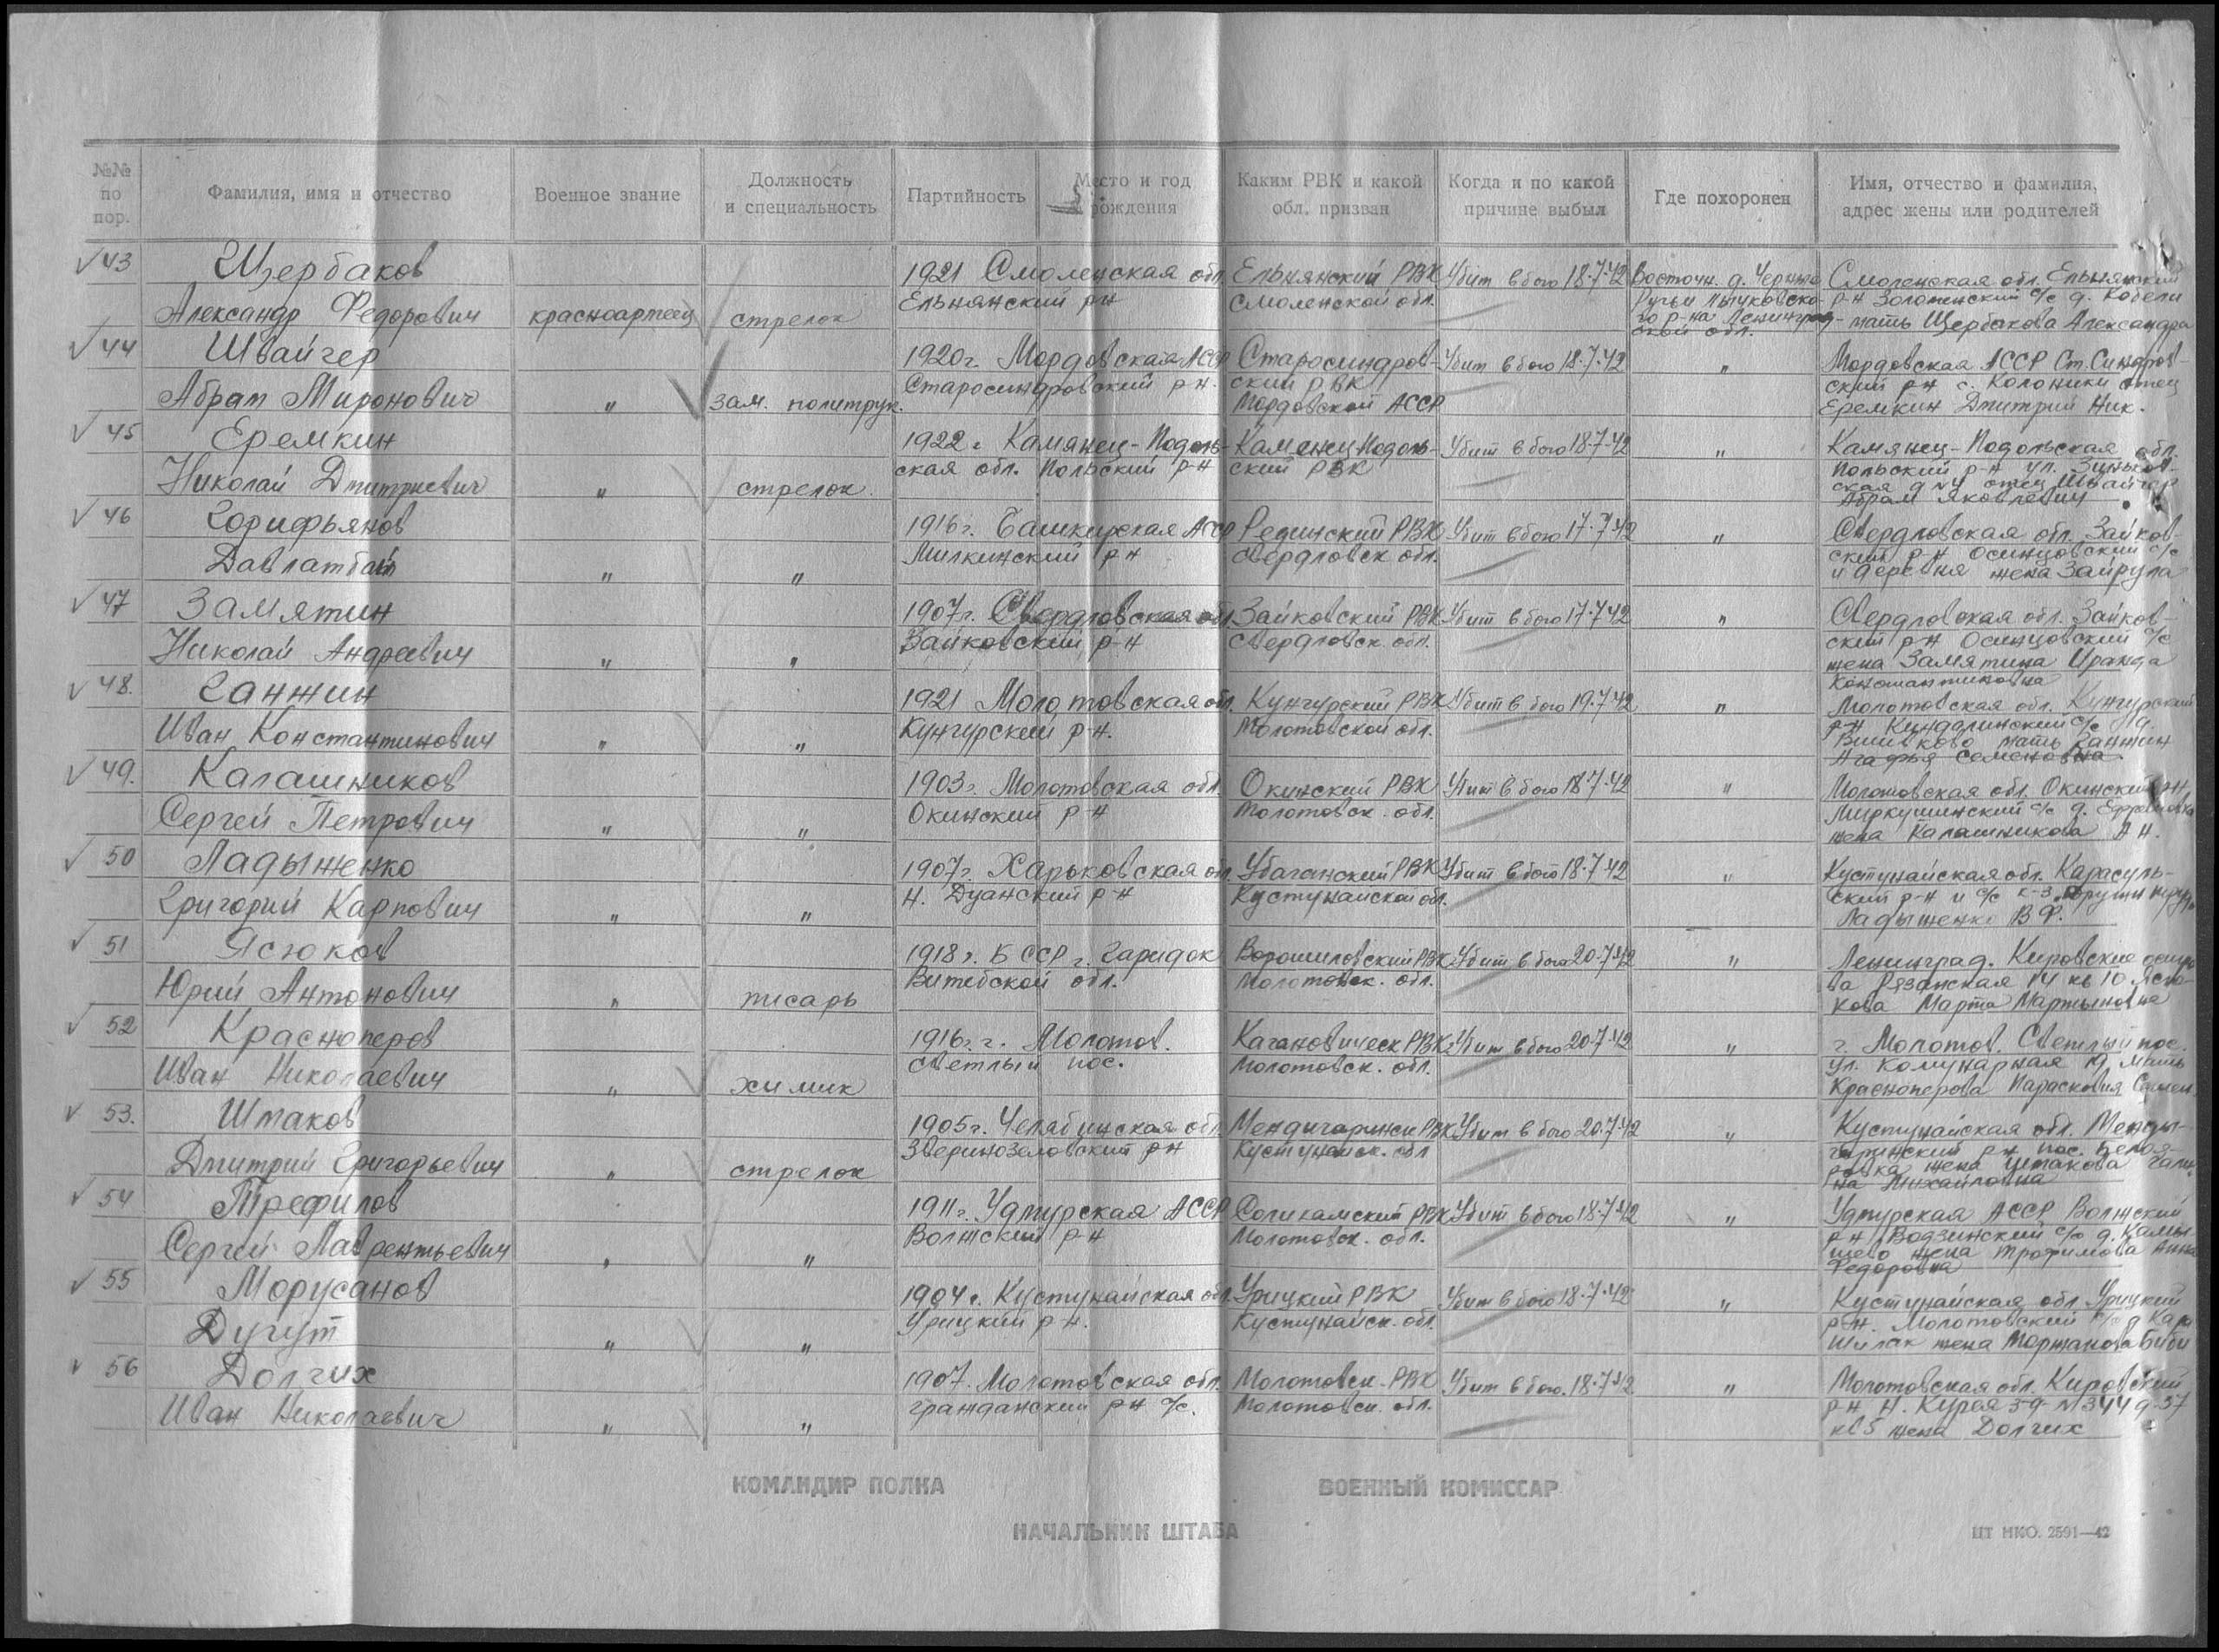 №№ по пор.
Фамилия, имя и отчество
Военное звание
Должность и специальность
Партийность
Место и год рождения
Каким РВК и какой обл. призван
Когда и по какой причине выбыл
Где похоронен
Имя, отчество и фамилия, адрес жены или родителей
43 Щербаков 1921 Смоленская обл. Ельнянский РВК Убит в бою 18.7.42 Восточн. д. Черные Смоленская обл. Ельнянский
Ельнянский р-н Смоленской обл. Ручьи Лычковско- р-н с/с д.
Александр Федорович красноармеец стрелок го р-на Ленинград- мать Щербакова Александра
ской обл.
44 Швайгер 1920г. Мордовская АССР Старосиндров- Убит в бою 18.7.42 " Мордовская АССР Ст. Синдров-
Старосиндровский р-н. ский РВК ский р-н с. Колопики отец
Абрам Миронович " зам. политрук. Мордовской АССР Еремкин Дмитрий Ник.
45 Еремкин 1922г. Камянец-Подоль- Каменец Подоль- Убит в бою 18.7.42 " Камянец-Подольская обл.
ская обл. Польский р-н ский РВК Польский р-н ул. Зиньков-
Николай Дмитриевич " стрелок ская д №4 отец Швайгер
Абрам Яковлевич
46 Горифьянов 1916г. Башкирская АССР РВК Убит в бою 17.7.42 " Свердловская обл. Зайков-
Милкинский р-н Свердловск обл. ский р-н Осинцовский с/с
Давлатбай " " и деревня жена Зайрула
47 Замятин 1907г. Свердловская обл. Зайковский РВК Убит в бою 17.7.42 " Свердловская обл. Зайков-
Зайковский р-н Свердловск. обл. ский р-н Осинцовский с/с
Николай Андреевич " " жена Замятина Ираида
Константиновна
48. Ганжин 1921 Молотовская обл. Кунгурский РВК Убит в бою 19.7.42 " Молотовская обл. Кунгурский
Кунгурский р-н. Молотовской обл. р-н с/с д.
Иван Константинович " " мать Ганжин
Агафья Семеновна.
49. Калашников 1903г. Молотовская обл. Окинский РВК Убит в бою 18.7.42 " Молотовская обл. Окинский р-н
Окинский р-н Молотовск. обл. Миркушинский с/с д.
Сергей Петрович " " жена Калашникова А Н.
50 Ладыженко 1907г. Харьковская обл. Убаганский РВК Убит в бою 18.7.42 " Кустунайская обл. Карасуль-
Н. Дуанский р-н Кустунайской обл. ский р-н и с/с к-з
Григорий Карпович " " Ладыженко В Ф.
51 Ясюков 1918г. БССР г. Гаридок Ворошиловский РВК Убит в бою 20.7.42 " Ленинград. Кировские остро
Витебской обл. Молотовск. обл. ва Рязанская 14 кв 10 Ясю-
Юрий Антонович " писарь кова Марта Мартыновна
52 Красноперов 1916г. г. Молотов. Кагановическ РВК Убит в бою 20.7.42 " г. Молотов. Светлый пос.
Светлый пос. Молотовск. обл. ул. Комунарная 19 мать
Иван Николаевич " химик Красноперова Парасковия Семен
53. Шпаков 1905г. Челябинская обл. Мендигаринск РВК Убит в бою 20.7.42 " Кустунайская обл. Менды-
Звериноголовский р-н Кустунайск. обл гаринский р-н пос.
Дмитрий Григорьевич " стрелок жена Шпакова Гали-
на Михайловна
54 Трефилов 1911г. Удмурская АССР Соликамский РВК Убит в бою 18.7.42 " Удмурская АССР Волжский
Волжский р-н Молотовск. обл. р-н Водзинский с/с д. Камы
Сергей Лаврентьевич " " шево жена Трофимова Анна
Федоровна
55 Морусанов 1904г. Кустунайская обл. Урицкий РВК Убит в бою 18.7.42 " Кустунайская обл. Урицкий
Урицкий р-н. Кустунайск. обл. р-н. Молотовский с/с д Кара
Дугут " " Шилак жена Моржанова Биби
56 Долгих 1907. Молотовская обл. Молотовск. РВК Убит в бою. 18.7.42 " Молотовская обл. Кировский
гражданский р-н с/с. Молотовск. обл. р-н Н. Курая з-д №344 д-37
Иван Николаевич " " кв 5 жена Долгих
КОМАНДИР ПОЛКА
ВОЕННЫЙ КОМИССАР
НАЧАЛЬНИК ШТАБА
ЦТ НКО. 2591—42